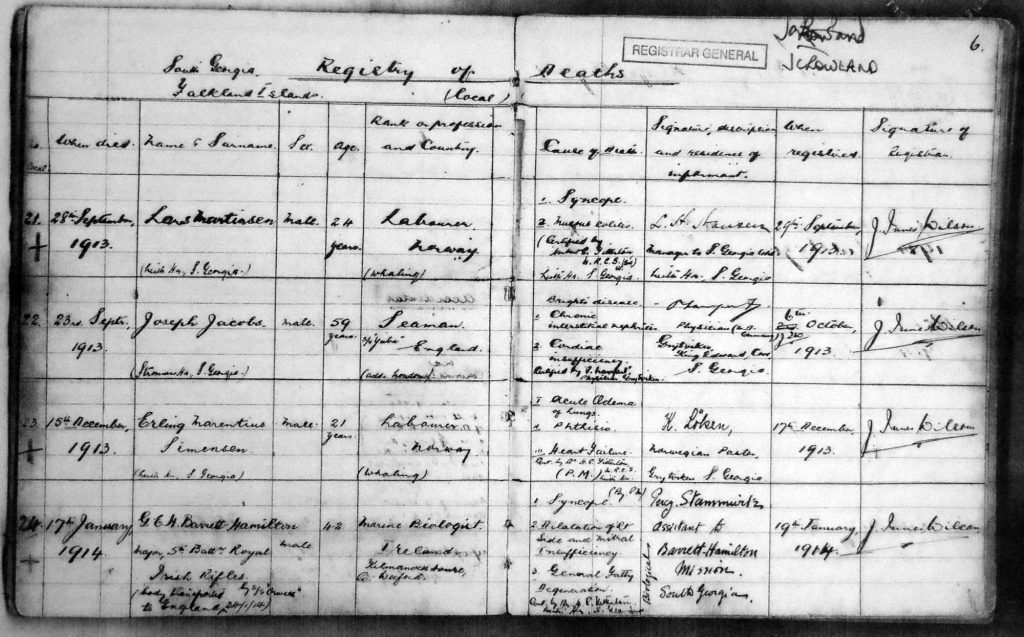 6.
REGISTRAR GENERAL
J C ROWLAND
South Georgia.
Registry of Deaths
Falkland Islands.
(Local)
No.
Local
When died.
Name & Surname.
Sex.
Age.
Rank or profession
and Country.
Cause of Death.
Signature, description
and residence of
informant.
When
registered
Signature of
Registrar.
21.
28th September,
1913.
Lars Martinsen
(Leith Hr., S. Georgia.)
male.
24
years.
Labourer,
Norway
(Whaling)
1. Syncope.
2. Mucous colitis.
(Certified by
Leith Hr., S. Georgia
L. H. Hansen
Manager to S. Georgia
Leith Hr., S. Georgia
29th September,
1913.
J. Innes Wilson
22.
23rd Septr.,
1913
Joseph Jacobs.
(Stromness Hr., S. Georgia.)
male.
59
years.
Seaman.
England.
(add. London)
Brights disease.
1. Chronic
interstitial nephritis
2. Cardiac
insufficiency.
Physician
Grytviken
King Edward Cove
S. Georgia
6th
October,
1913.
J. Innes Wilson
23.
15th December,
1913.
Erling Marentius
Simensen
(Leith Hr., S. Georgia)
male.
21
years.
Labourer
Norway
(Whaling)
I Acute Œdema
of Lungs.
Phthisis
III Heart Failure
(P.M.)
K. Löken,
Norwegian Pastor
Grytviken S. Georgia
17th December,
1913.
J. Innes Wilson
24.
17th January,
1914.
G. E. H. Barrett Hamilton
Major, 5th Battn. Royal
Irish Rifles.
(body transported
to England, 24/1/14)
male
42
Marine Biologist.
Ireland
Kilmanock House,
Co. Wexford.
1. Syncope. (By P.M.)
2. Dilatation of Rt
Side and Mitral
Insufficiency
3. General Fatty
Degeneration.
Stammwitz
assistant to
Barrett-Hamilton
Biological
Mission.
South Georgia.
19th January,
1914.
J. Innes Wilson